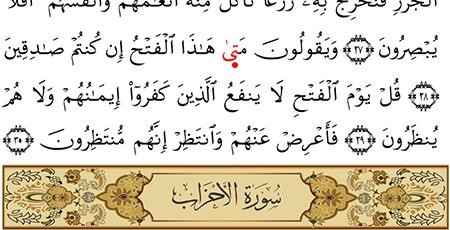 الْجُرُزِ فَنُخْرِجُ بِهِۦ زَرْعًا تَأْكُلُ مِنْهُ أَنْعَٰمُهُمْ وَأَنفُسُهُمْ أَفَلَا
يُبْصِرُونَ ٢٧ وَيَقُولُونَ مَتَىٰ هَٰذَا الْفَتْحُ إِن كُنتُمْ صَٰدِقِينَ
٢٨ قُلْ يَوْمَ الْفَتْحِ لَا يَنفَعُ الَّذِينَ كَفَرُوٓا۟ إِيمَٰنُهُمْ وَلَا هُمْ
يُنظَرُونَ ٢٩ فَأَعْرِضْ عَنْهُمْ وَانتَظِرْ إِنَّهُم مُّنتَظِرُونَ ٣٠
سُورَةُ الْأَحْزَابِ